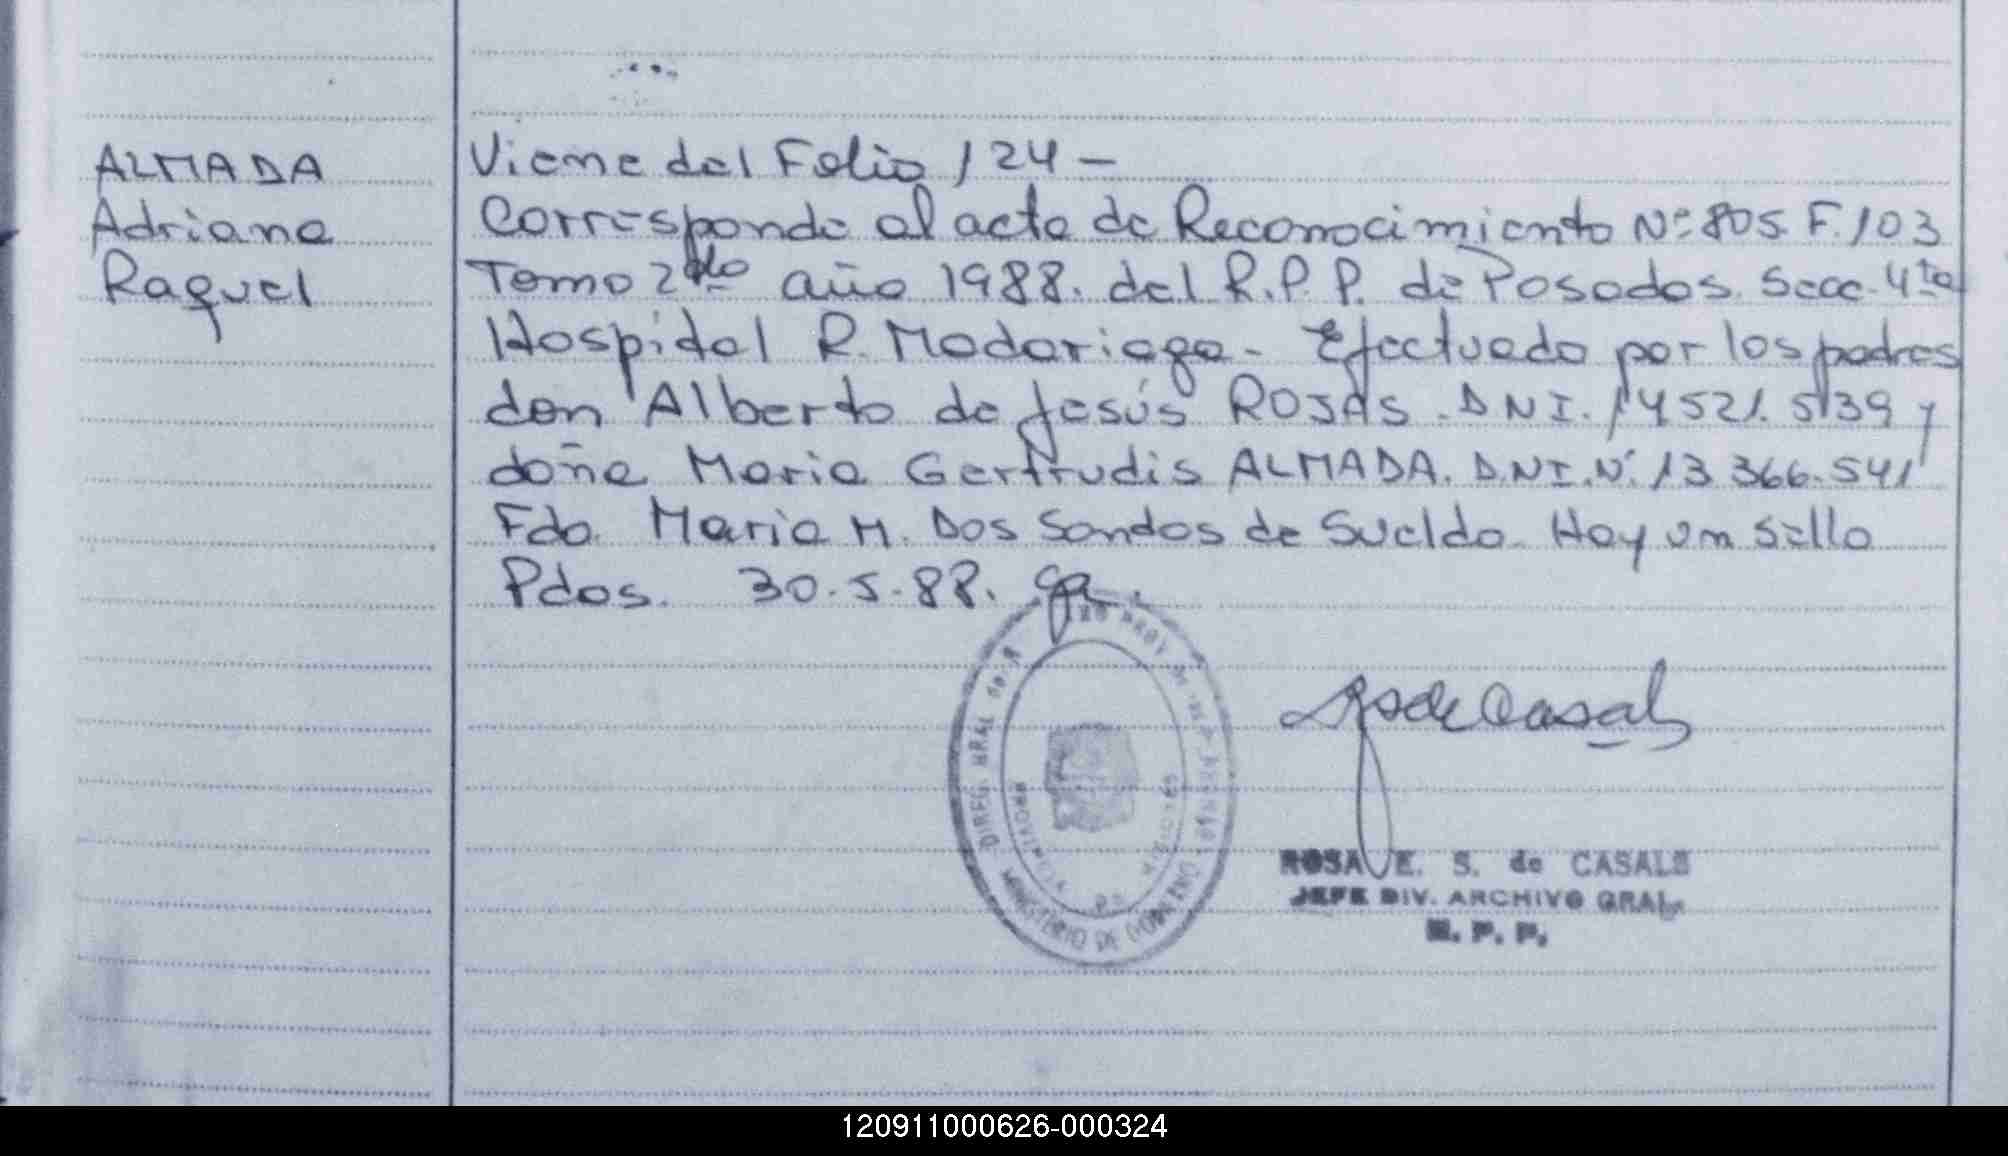 ALMADA
Adriana
Raquel
Viene del Folio 124 -
Corresponde al acta de Reconocimiento Nº 805 F. 103
Tomo 2do año 1988. del R.P.P. de Posadas. Secc. 4ta
Hospital R. Madariaga - Efectuado por los padres
don Alberto de Jesús ROJAS. DNI. 14521.539 y
doña Maria Gertrudis ALMADA. D.NI.Nº 13 366.541
Fdo. Maria M. Dos Sandos de Sueldo. Hay un sello
Pdos. 30.5.88.
DIREC. GRAL
MINISTERIO DE GOBIERNO
PROVINCIA DE
ROSA E. S. de CASALS
JEFE DIV. ARCHIVO GRAL.
R. P. P.
120911000626-000324